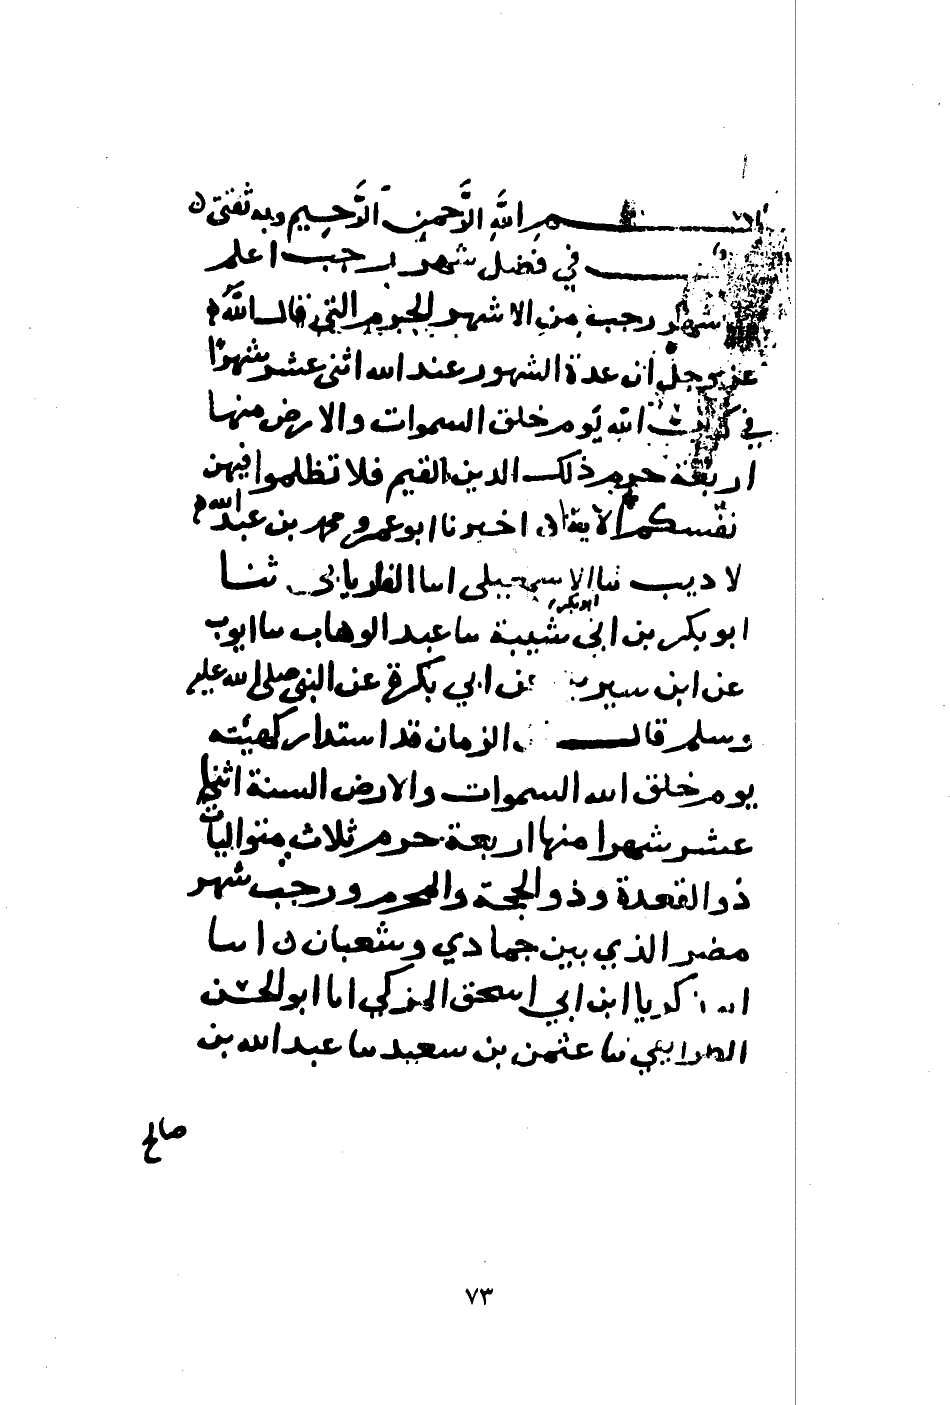 بسم الله الرَّحمن الرَّحيم وبه ثقتي ن
في فضل شهر رجب اعلم
شهر رجب من الاشهر الحرم التي قال الله
عز وجل ان عدة الشهور عند الله اثنى عشر شهرًا
في كتاب الله يوم خلق السموات والارض منها
اربعة حرم ذلك الدين القيم فلا تظلموا فيهن
نفسكم الاية ن اخبرنا ابو عمرو محمد بن عبد الله
لاديب سا الاسمعيلي اسا الفاريابي ثنا
ابو بكر
ابو بكر بن ابي شيبة سا عبد الوهاب سا ايوب
عن ابن سيرين عن ابي بكرة عن النبي صلى الله عليه
وسلم قال الزمان قد استدار كهيئته
يوم خلق الله السموات والارض السنة اثنا
عشر شهرا منها اربعة حرم ثلاث متواليات
ذو القعدة وذو الحجة والمحرم ورجب شهر
مضر الذي بين جمادي وشعبان ن اسا
زكريا ابن ابي اسحق المزكي اما ابو الحسن
الطرايفي سا عثمن بن سعيد سا عبد الله بن
صالح
٧٣